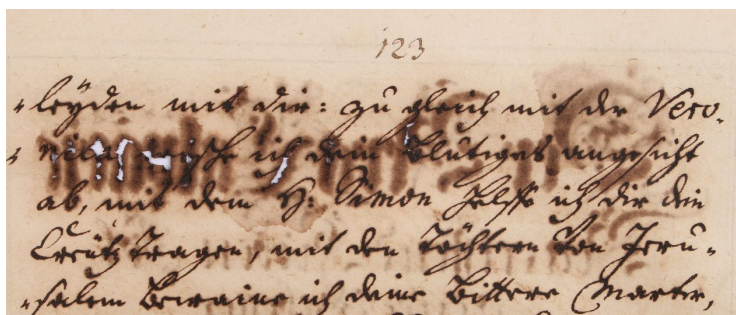 123
„leyden mit dir: zu gleich mit der Vero„
„nica wische ich dein blutiges angesicht
ab, mit dem H: Simon helffe ich dir dein
Creütz tragen, mit den Töchtern von Jeru„
„salem bewaine ich deine bittere Marter,